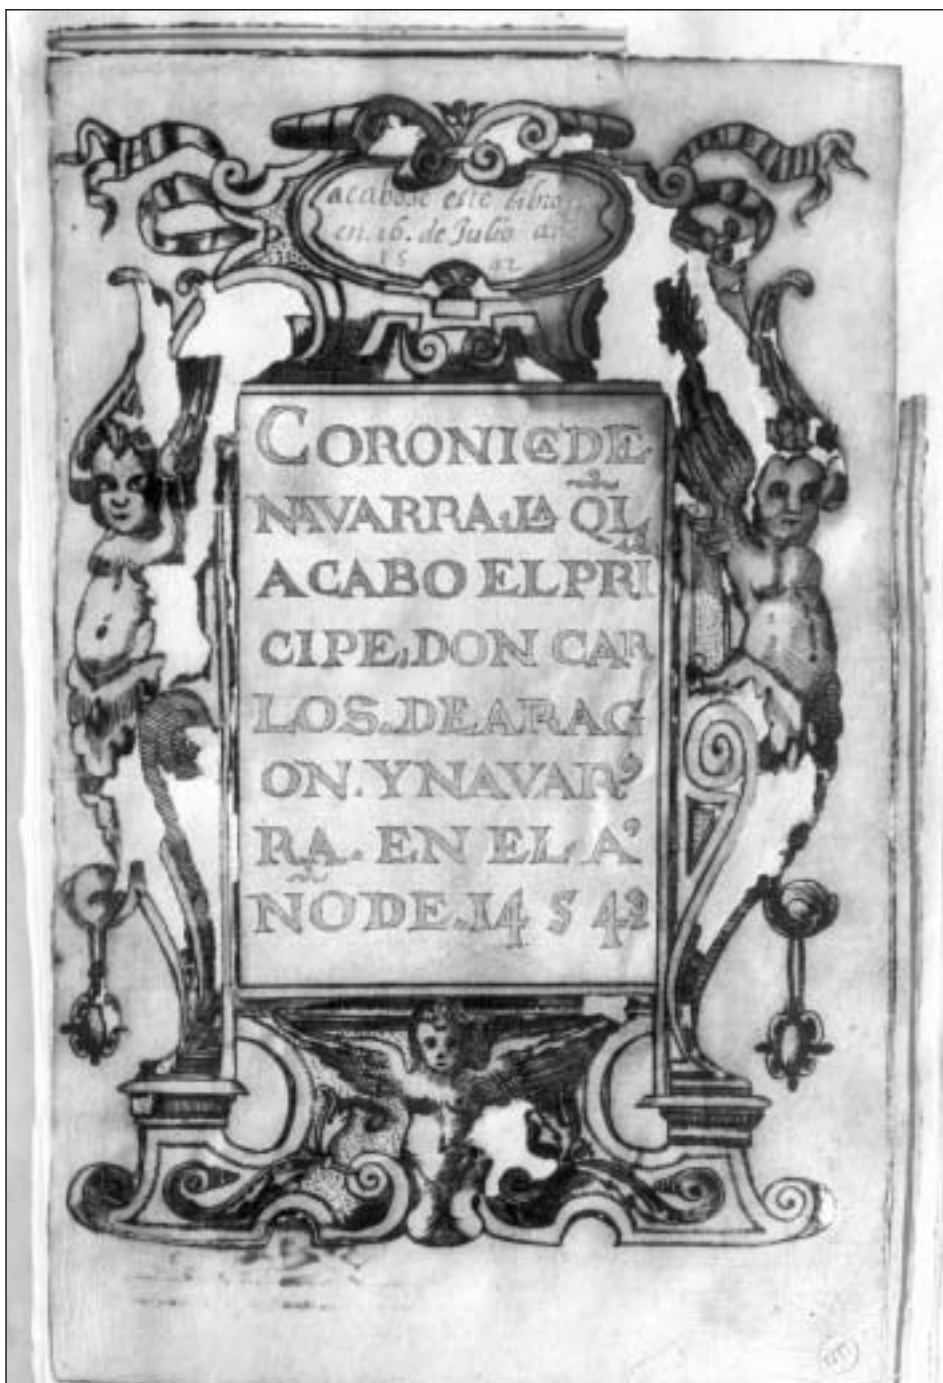 acabose este libro
en. 16. de Julio año
15 42
CORONICA DE
NAVARRA, LA QL
ACABO EL PRI
CIPE, DON CAR
LOS. DE ARAG
ON. Y NAVAR
RA. EN EL. A
ÑO DE. 14 5 4